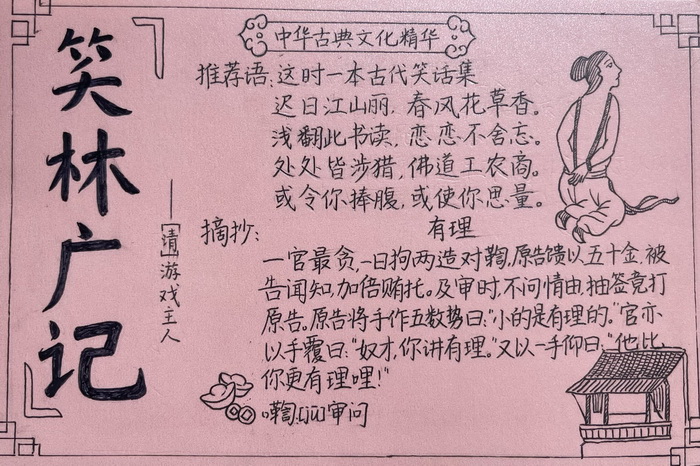 中华古典文化精华
笑林广记
——[清]游戏主人
推荐语:这时一本古代笑话集
迟日江山丽,春风花草香。
浅翻此书读,恋恋不舍忘。
处处皆涉猎,佛道工农商。
或令你捧腹,或使你思量。
摘抄: 有理
一官最贪,一日拘两造对鞫,原告馈以五十金,被
告闻知,加倍贿托。及审时,不问情由,抽签竟打
原告。原告将手作五数势曰:"小的是有理的。"官亦
以手覆曰:"奴才,你讲有理。"又以一手仰曰:"他比
你更有理哩!"
鞫:[jū]审问